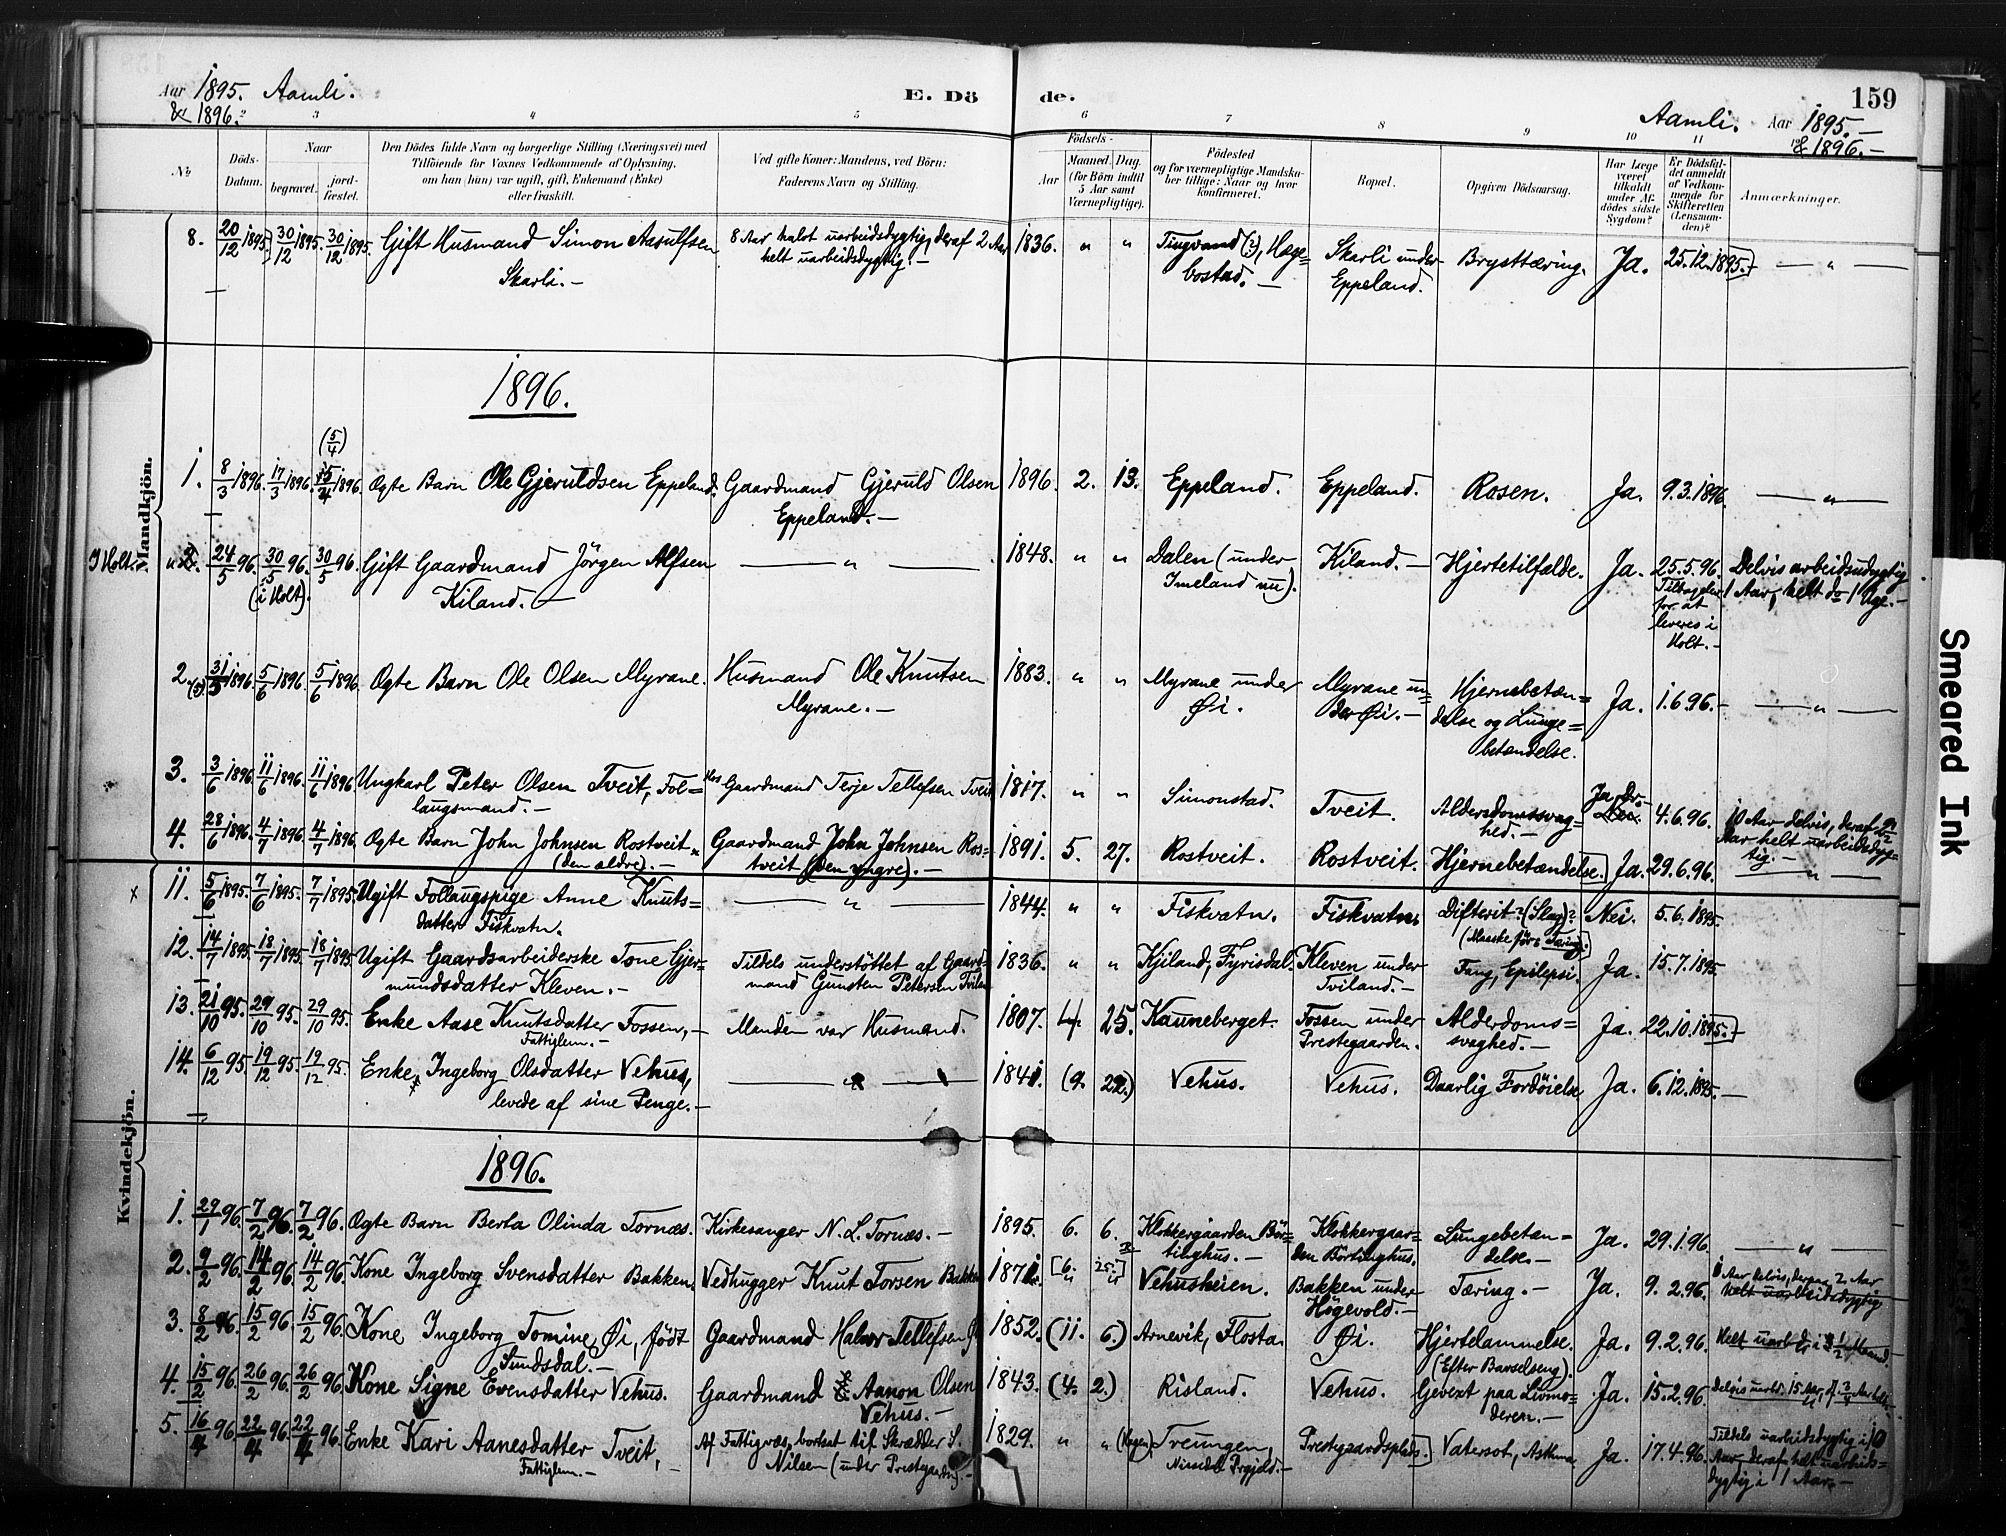 Aar 1895. Aamli.
& 1896.
E. Dö de.
159
Aamli. Aar 1895.—
& 1896.—
2 3 4 5 6 7 8 9 10 11
№
Döds-Datum.
Naar
begravet. jord-fæstet.
Den Dödes fulde Navn og borgerlige Stilling (Næringsvei) med
Tilföiende for Voxnes Vedkommende af Oplysning,
om han (hun) var ugift, gift, Enkemand (Enke)
eller fraskilt.
Ved gifte Koner: Mandens, ved Börn:
Faderens Navn og Stilling.
Födsels-
Aar Maaned. Dag.
(for Börn indtil
5 Aar samt
Værnepligtige).
Födested
og for værnepligtige Mandska-
ber tillige: Naar og hvor
konfirmeret.
Bopæl.
Opgiven Dödsaarsag.
Har Læge
været
tilkaldt
under Af-
dödes sidste
Sygdom?
Er Dödsfal-
det anmeldt
af Vedkom-
mende for
Skifteretten
(Lensman-
den)?
Anmærkninger.
Mandkjön.
8. 20/12 1895 30/12 1895. 30/12 1895. Gift Husmand Simon Aasulfsen 8 Aar halvt uarbeidsdygtig, deraf 2 Aar 1836. " " Tingvand (?), Hæge= Skarli under Brysttæring. Ja. 25.12.1895. — " —
Skarli.— helt uarbeidsdygtig.— bostad.— Eppeland.
1896.
(5/4)
1. 8/3 1896. 17/3 1896. 15/4 1896. Ægte Barn Ole Gjeruldsen Eppeland. Gaardmand Gjeruld Olsen 1896. 2. 13. Eppeland. Eppeland. Rosen. Ja. 9.3.1896. — " —
Eppeland.—
I Holt. " 2. 24/5 96. 30/5 96. 30/5 96. Gift Gaardmand Jörgen Alfsen — " — 1848. " " Dalen (under Kiland.— Hjertetilfælde. Ja. 25.5.96. Delvis arbeidsudygtig
(i Holt). Kiland.— Imeland nu). Tilbagelev. for at leveres i Holt.— 1 Aar, helt do 1 Uge.—
2. (3) 31/5 1896. 5/6 1896. 5/6 1896. Ægte Barn Ole Olsen Myrane. Husmand Ole Knutsen 1883. " " Myrane under Myrane un= Hjernebetæn= Ja. 1.6.96.— — " —
Myrane.— Øi. der Øi.— delse og Lunge=
betændelse.
3. 3/6 1896. 11/6 1896. 11/6 1896. Ungkarl Peter Olsen Tveit, Fol= Hos Gaardmand Terje Tellefsen Tveit 1817. " " Simonstad. Tveit. Alderdomssvag= Ja, Dr. Nei. 4.6.96. 10 Aar delvis, deraf 2
laugsmand.— hed.— Aar helt uarbeidsdyg=
tig.—
4. 28/6 1896. 4/7 1896. 4/7 1896. Ægte Barn John Johnsen Rostveit Gaardmand John Johnsen Ros= 1891. 5. 27. Rostveit. Rostveit. Hjernebetændelse. Ja. 29.6.96. — " —
(den ældre).— tveit (den yngre).—
Kvindekjön.
x 11. 5/6 1895. 7/6 1895. 7/7 1895. Ugift Follaugspige Anne Knuts= — " — 1844. " " Fiskvatn. Fiskvatn. Difterit? (Slag)? Nei. 5.6.1895.
datter Fiskvatn. (Maaske för: Tæring).
12. 14/7 1895. 18/7 1895. 18/7 1895. Ugift Gaardsarbeiderske Tone Gjer= Tildels understöttet af Gaard= 1836. " " Kjiland, Fyrisdal. Kleven under Fang, Epilepsi. Ja. 15.7.1895.
mundsdatter Kleven.— mand Gunsten Petersen Tviland Tviland.—
13. 21/10 95. 29/10 95. 29/10 95. Enke Aase Knutsdatter Fossen,— Manden var Husmand. 1807. 4. 25. Kauneberget. Fossen under Alderdoms= Ja. 22.10.1895.
Fattiglem.— Prestegaarden. svaghed.—
14. 6/12 95. 19/12 95. 19/12 95. Enke, Ingeborg Olsdatter Vehus, — " — 1841. (9. 22.) Vehus. Vehus. Daarlig Fordöielse Ja. 6.12.1895.—
levede af sine Penge.—
1896.
1. 29/1 96. 7/2 96. 7/2 96. Ægte Barn Berta Olinda Tornæs. Kirkesanger N. L. Tornæs.— 1895. 6. 6. Klokkergaarden Bör= Klokkergaar= Lungebetæn= Ja. 29.1.96. — " —
tinghus.— den Börtinghus. delse.—
2. 9/2 96. 14/2 96. 14/2 96. Kone Ingeborg Svensdatter Bakken. Vedhugger Knut Torsen Bakken 1871. [6. 25.] Vehusheien. Bakken under Tæring.— Ja. 9.2.96. Aar delvis, deraf 2 Aar
Högevold.— helt uarbeidsdygtig
3. 8/2 96. 15/2 96. 15/2 96. Kone Ingeborg Tomine Øi, född Gaardmand Halvor Tellefsen Øi 1852. (11. 6.) Arnevik, Flosta. Øi. Hjertelammelse. Ja. 9.2.96. Helt uarb. i 3 1/2 Maaned.
Sundsdal.— (Efter Barselseng).
4. 15/2 96. 26/2 96. 26/2 96. Kone Signe Evensdatter Vehus. Gaardmand Aanon Olsen 1843. (4. 2.) Risland. Vehus. Gevext paa Livmo= Ja. 15.2.96. Delvis uarbd. 15 Aar, 3/4 Aar helt.
Vehus.— deren.—
5. 16/4 96. 22/4 96. 22/4 96. Enke Kari Aanesdatter Tveit,— Af Fattigvæs. bortsat til Skrædder S. 1829. " " (Vegen) Treungen, Prestegaardsplads. Vatersot, Astma Ja. 17.4.96. Tildels uarbeidsdygtig i 10
Fattiglem.— Nilsen (under Prestegaarden).— Nissedal Prgjeld.— Aar, deraf helt uarbeids=
dygtig i 1 Aar.—
Smeared Ink